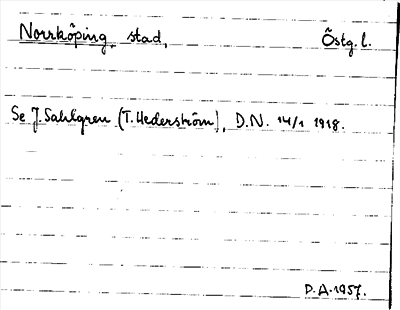 Norrköping, stad, Östg. l.
Se J. Sahlgren (T. Hederström), D.N. 14/1 1918.
D.A. 1957.